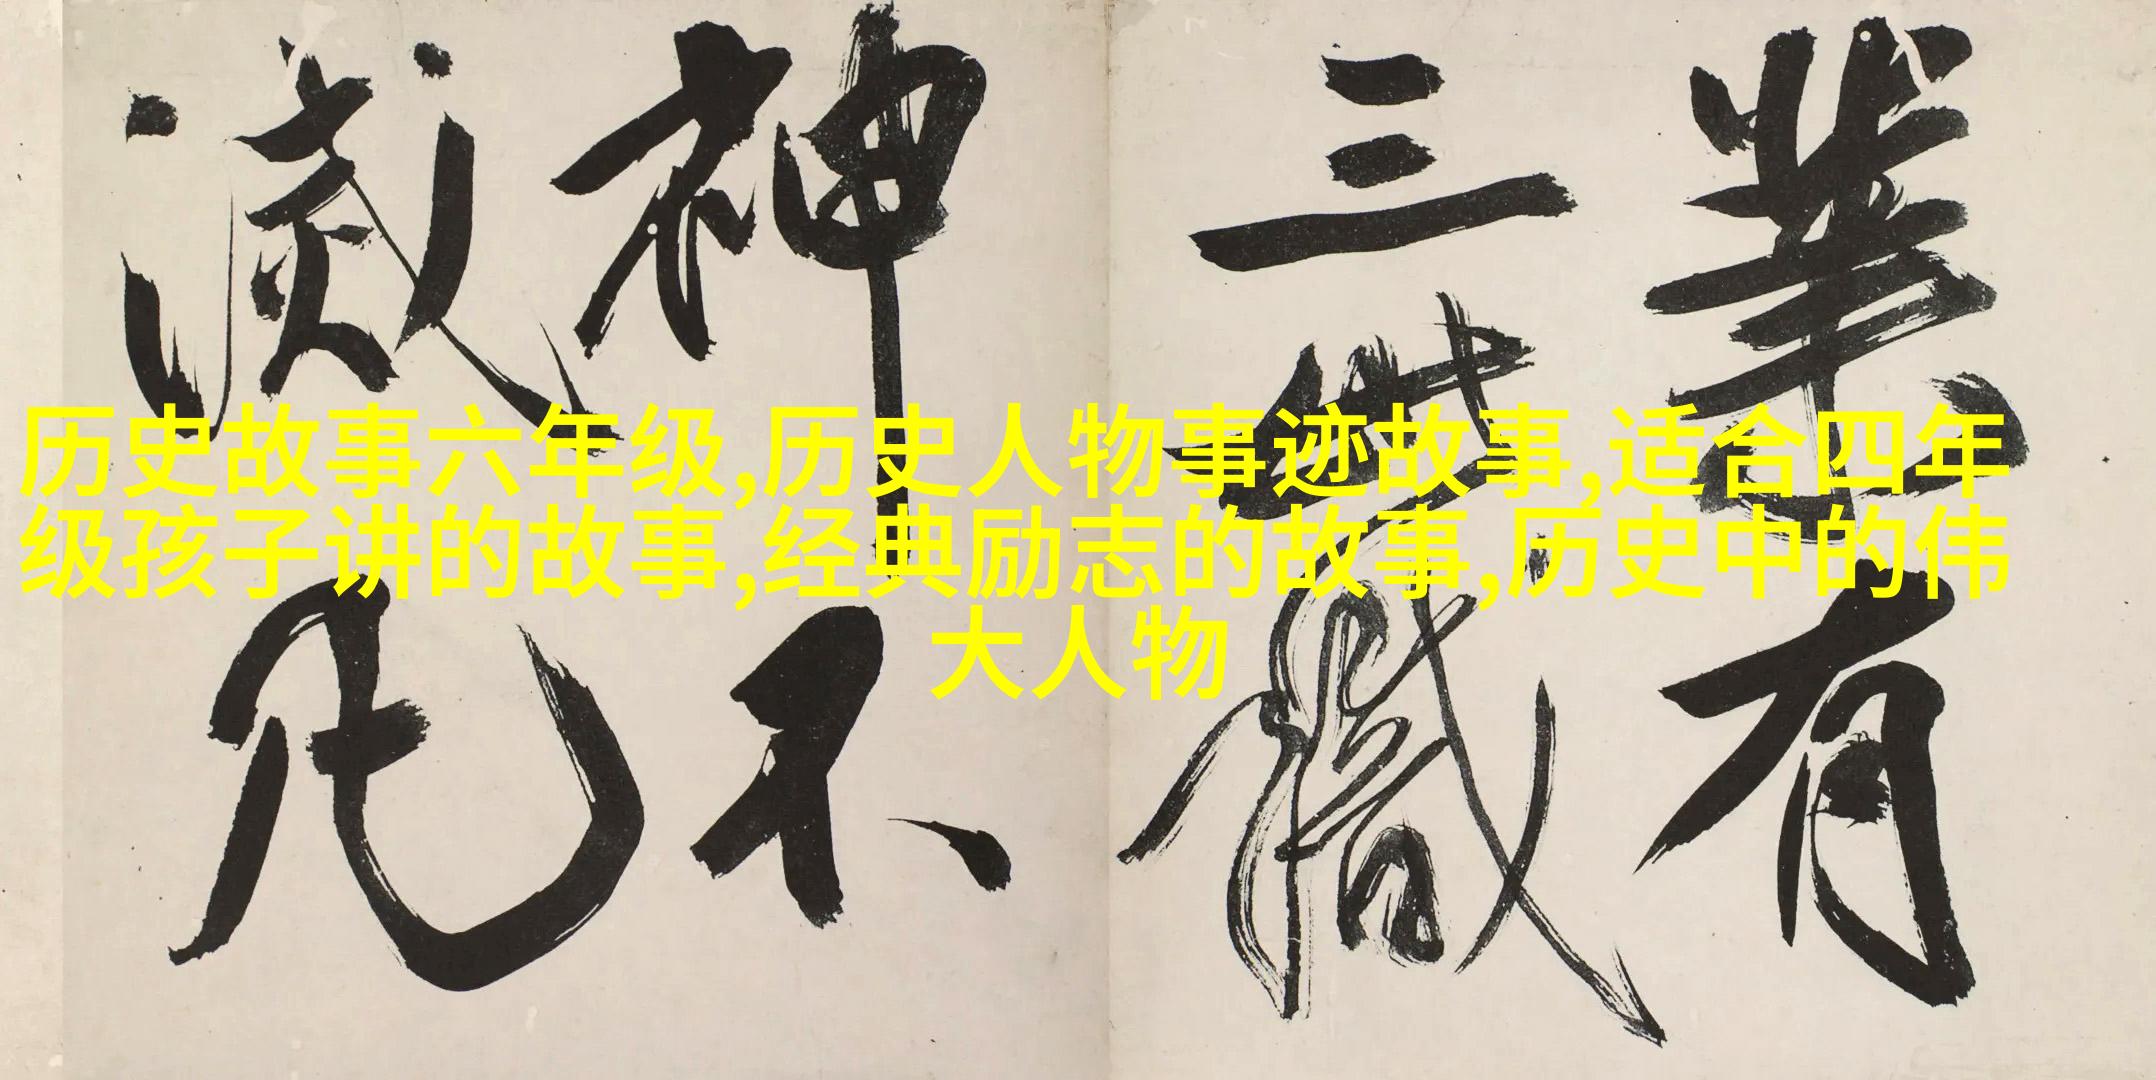 業有
三世職
神不
滅凡
历史故事六年级,历史人物事迹故事,适合四年
级孩子讲的故事,经典励志的故事,历史中的伟
大人物